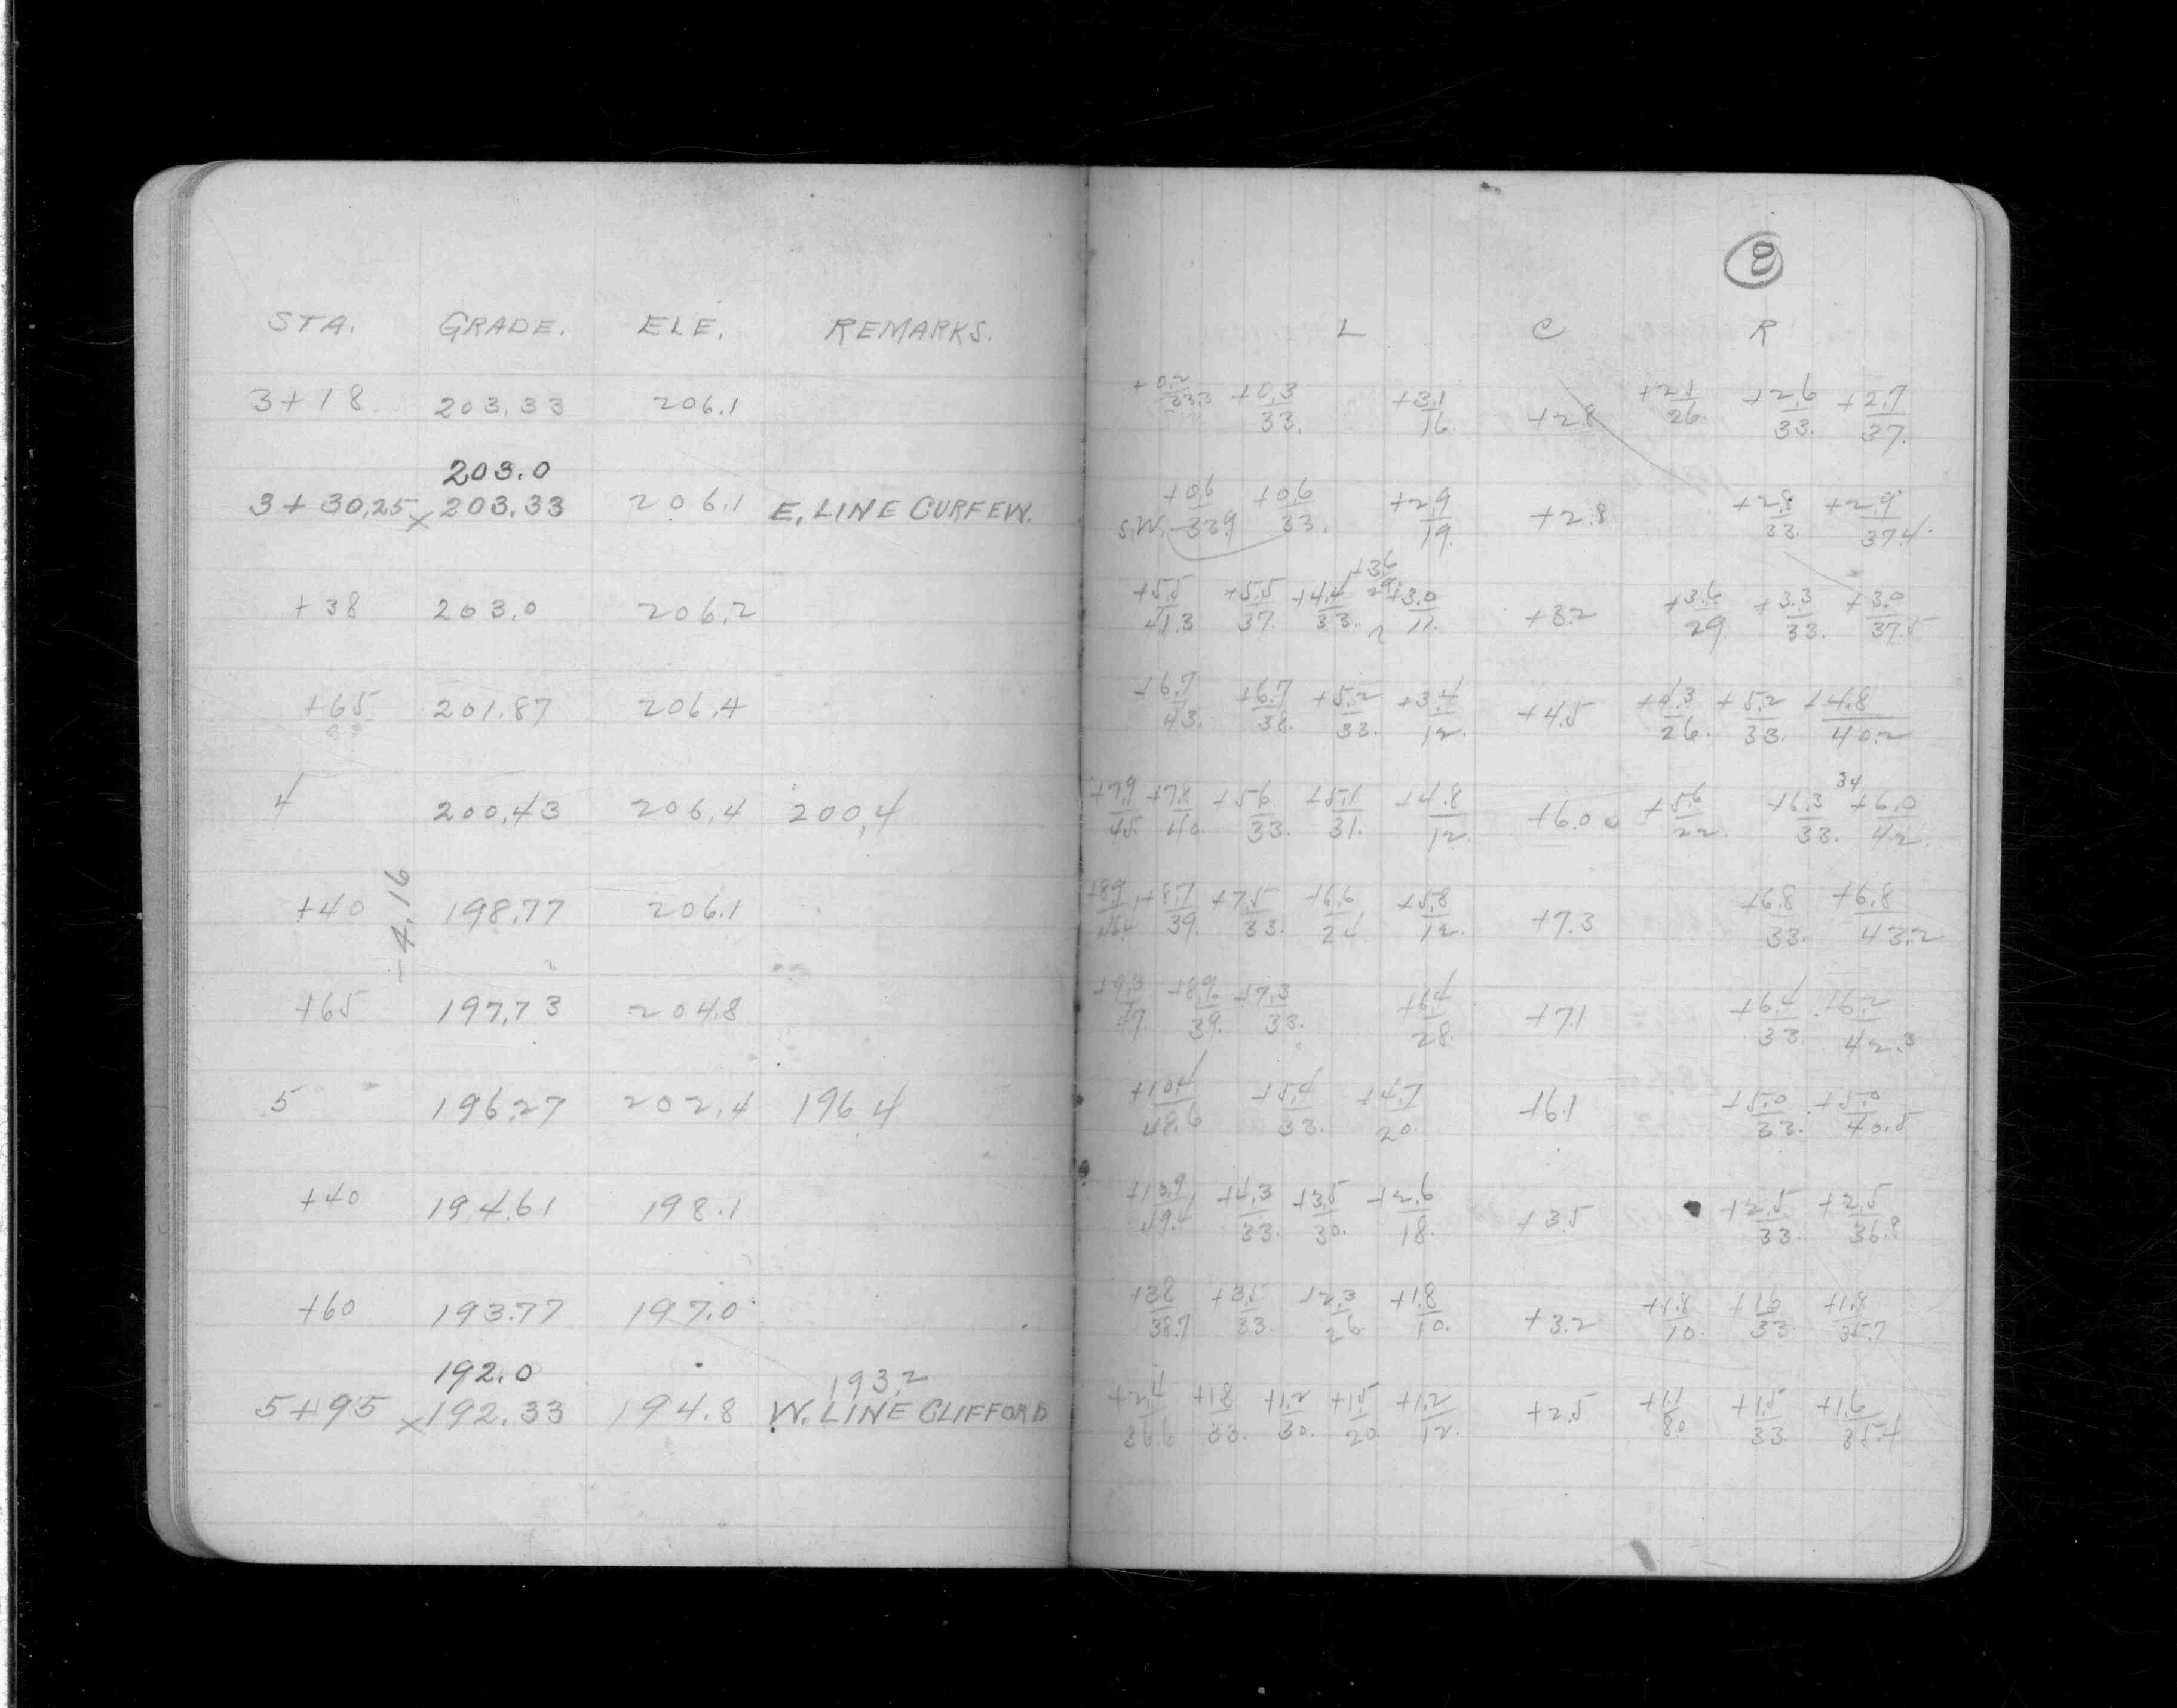 8
STA. GRADE. ELE. REMARKS. L C R
3+18 203.33 206.1 +0.2/33.3 +0.3/33. +3.1/16. +2.8 +2.1/26. +2.6/33. +2.7/37.
203.0
3+30.25 x 203.33 206.1 E. LINE CURFEW. S.W. +0.6/33.9 +0.6/33. +2.9/19. +2.8 +2.8/33. +2.9/37.4
+38 203.0 206.2 +5.5/41.3 +5.5/37. +4.4/33. +3.6/29. +3.0/11. +3.2 +3.6/29. +3.3/33. +3.0/37.5
+65 201.87 206.4 +6.7/43. +6.7/38. +5.2/33. +3.4/12. +4.5 +4.3/26. +5.2/33. +4.8/40.2
4 200.43 206.4 200.4 +7.9/45. +7.8/40. +5.6/33. +5.1/31. +4.8/12. +6.0 +5.6/22. +6.3/33. 34 +6.0/42.
-4.16
+40 198.77 206.1 +8.9/46.4 +8.7/39. +7.5/33. +6.6/24. +5.8/12. +7.3 +6.8/33. +6.8/43.2
+65 197.73 204.8 +9.3/47. +8.9/39. +9.3/33. +6.4/28. +7.1 +6.4/33. +6.2/42.3
5 196.27 202.4 196.4 +10.4/48.6 +5.4/33. +4.7/20. +6.1 +5.0/33. +5.0/40.5
+40 194.61 198.1 +10.9/49.4 +4.3/33. +3.5/30. +2.6/18. +3.5 +2.5/33. +2.5/36.8
+60 193.77 197.0 +3.8/38.7 +3.5/33. +2.3/26 +1.8/10. +3.2 +1.8/10. +1.6/33. +1.8/35.7
192.0 193.2
5+95 x 192.33 194.8 W. LINE CLIFFORD +2.4/36.6 +1.8/33. +1.2/30. +1.5/20 +1.2/12. +2.5 +1.1/8.0 +1.5/33. +1.6/35.4